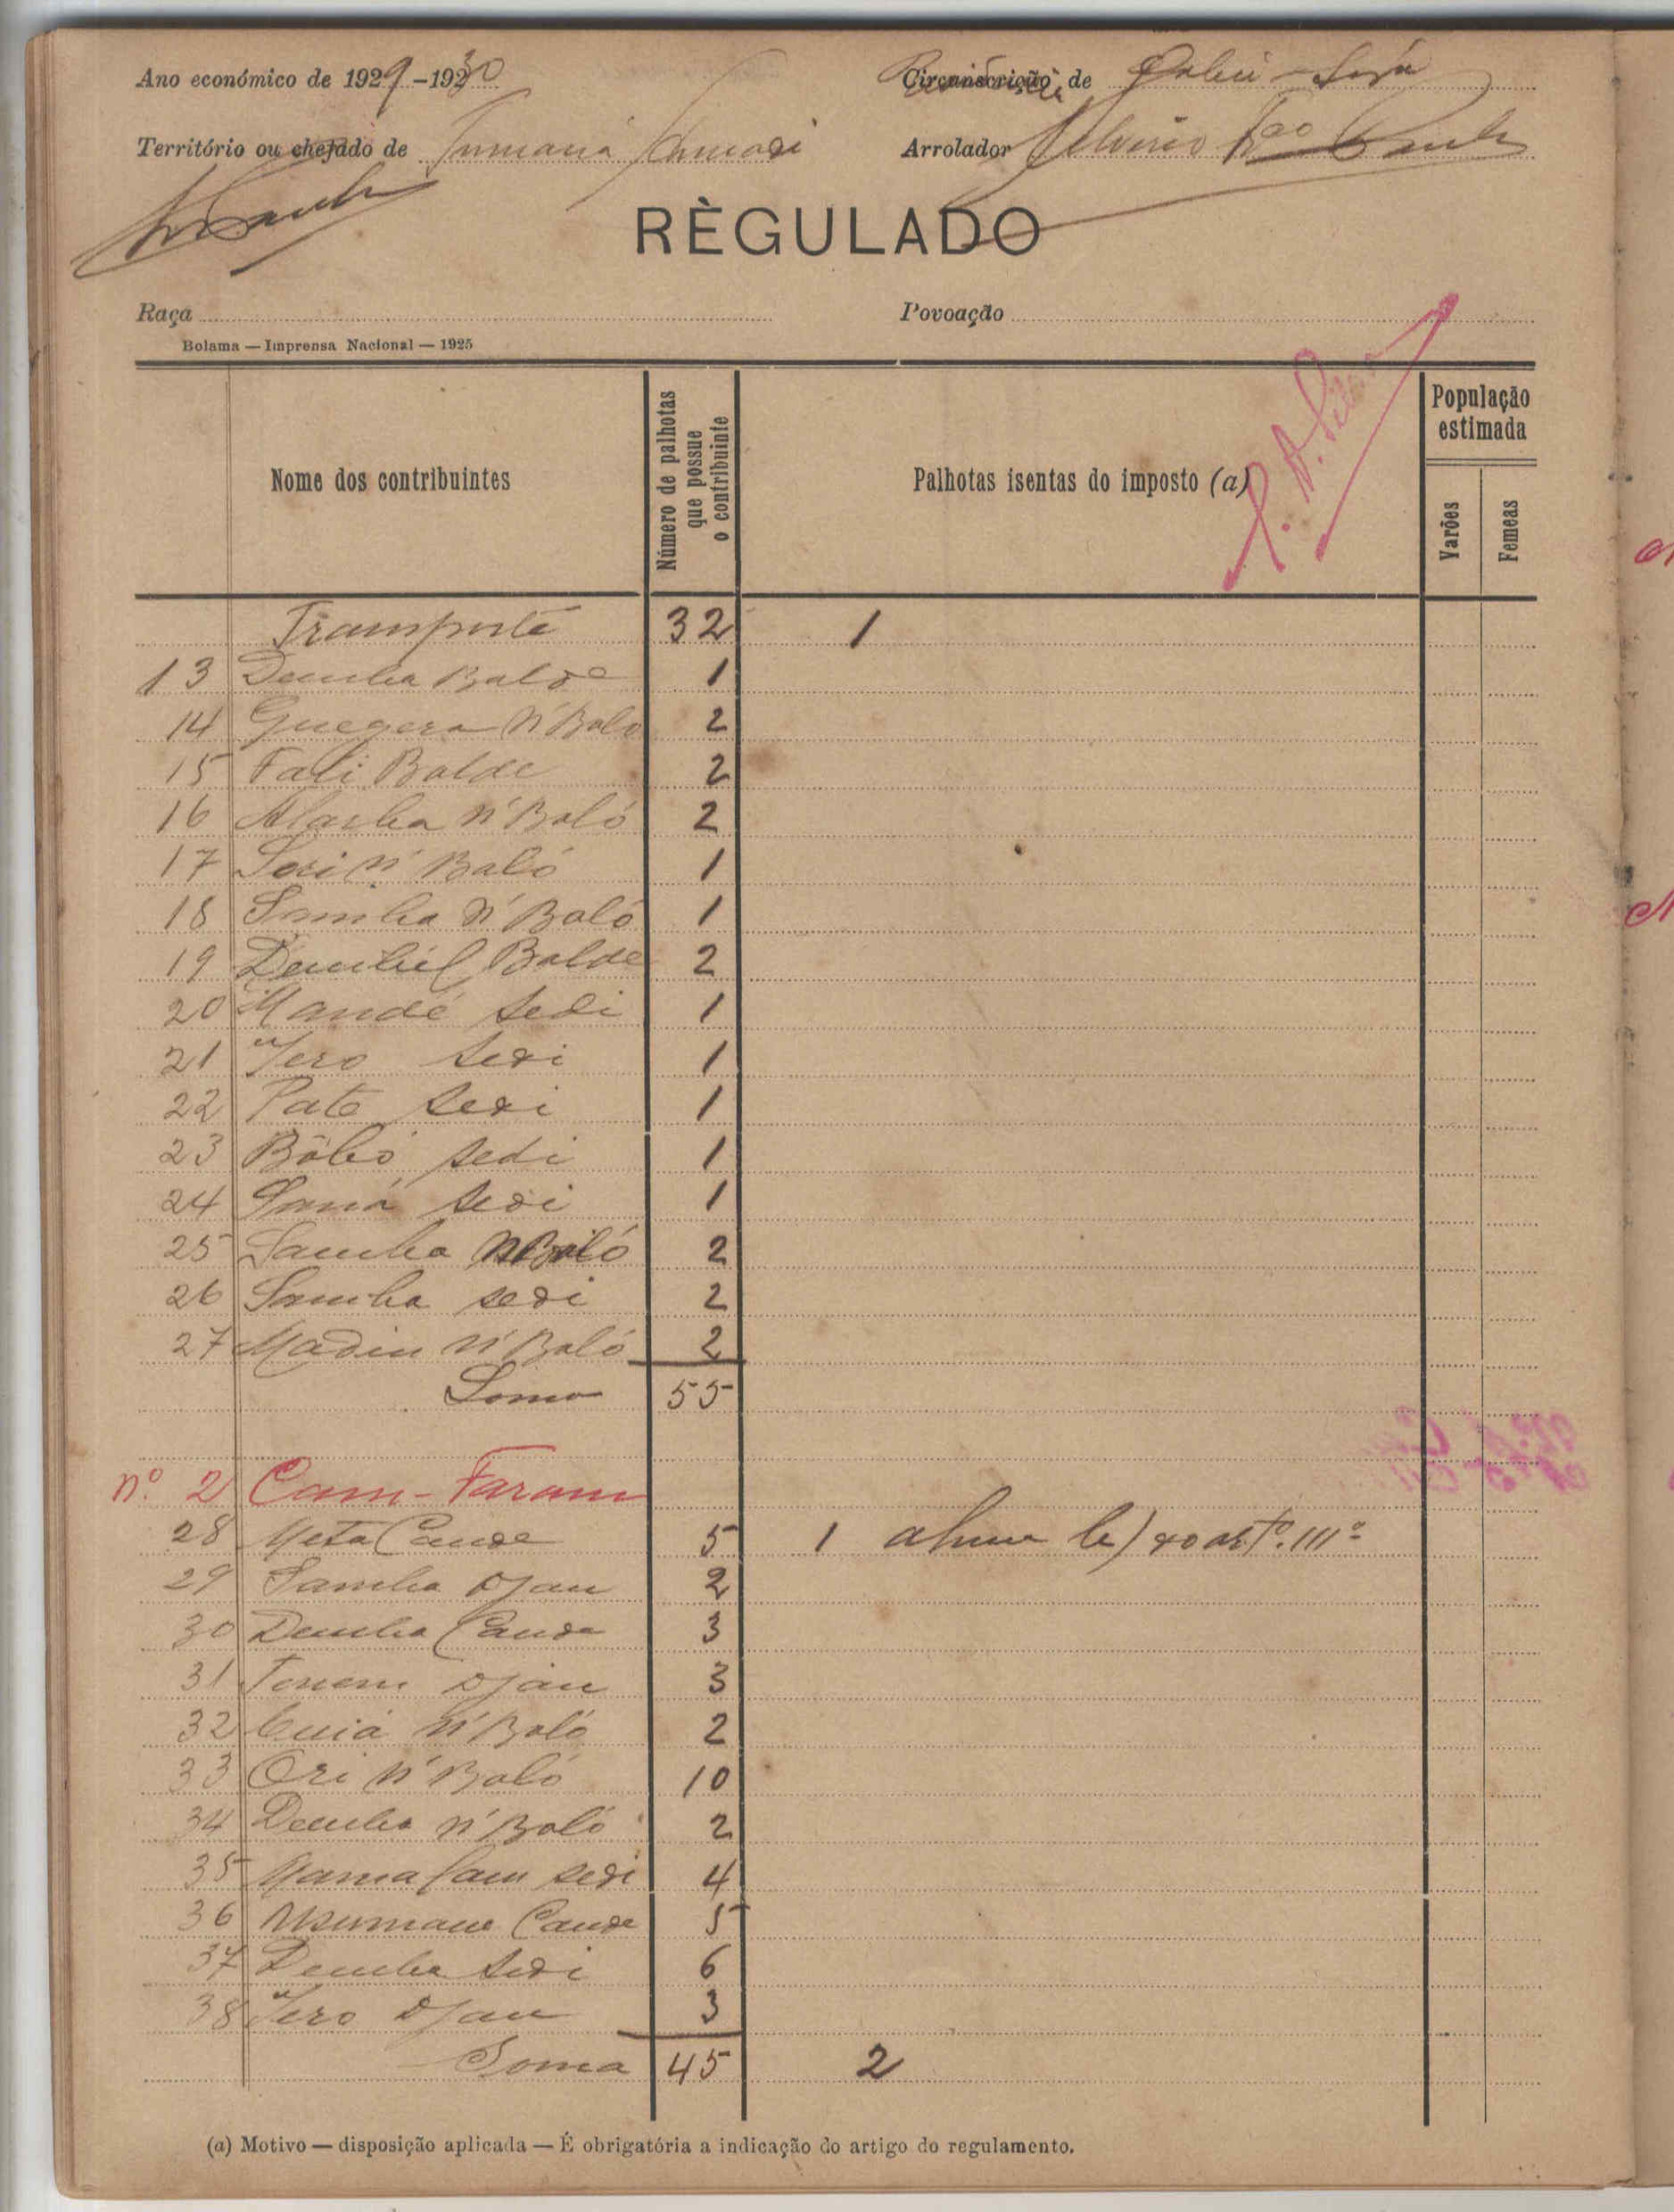 Ano económico de 1929-1930
Circunscrição de
Território ou chefado de
Arrolador
RÈGULADO
Raça
Povoação
Bolama — Imprensa Nacional — 1925
Nome dos contribuintes
Número de palhotas que possue o contribuinte
Palhotas isentas do imposto (a)
População estimada
Varões
Femeas
Transporte 32 1
13 Demba Balde 1
14 N'Balo 2
15 Fali Balde 2
16 N'Baló 2
17 Sori N'Baló 1
18 Samba N'Baló 1
19 Dembél Balde 2
20 Mandé Sedi 1
21 Iero Sedi 1
22 Pate Sedi 1
23 Bôbó Sedi 1
24 Saná Sedi 1
25 Samba N'Baló 2
26 Samba Sedi 2
27 Madiu N'Baló 2
Soma 55
nº 2 Cam-Faram
28 Meta Cande 5 1 b) do artº. 111º
29 Samba Djau 2
30 Demba Cande 3
31 Djau 3
32 Cuiá N'Baló 2
33 Ori N'Baló 10
34 Demba N'Baló 2
35 Sedi 4
36 Usumane Cande 5
37 Demba Sedi 6
38 Iero Djau 3
Soma 45 2
(a) Motivo — disposição aplicada — É obrigatória a indicação do artigo do regulamento.